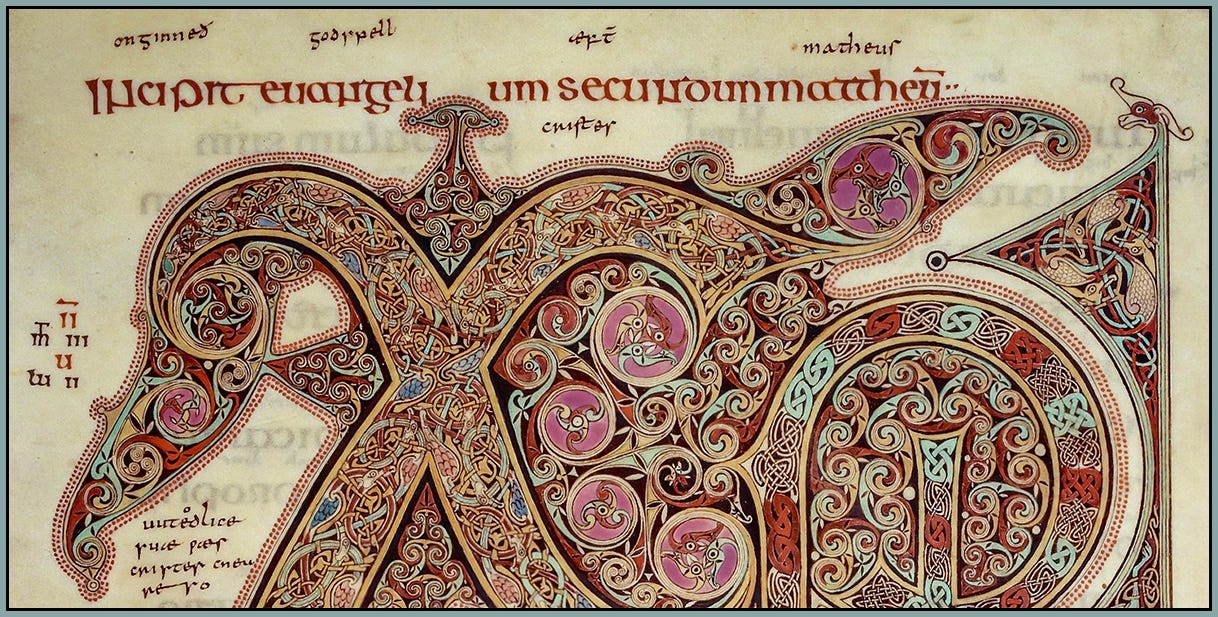 onginneð godspell æft̄ matheus
Incipit euangeli um secundum mattheū
cristes
II
m̄ iii
u
lu ii
uutedlice
suæ ƿæs
cristes cneu
reso